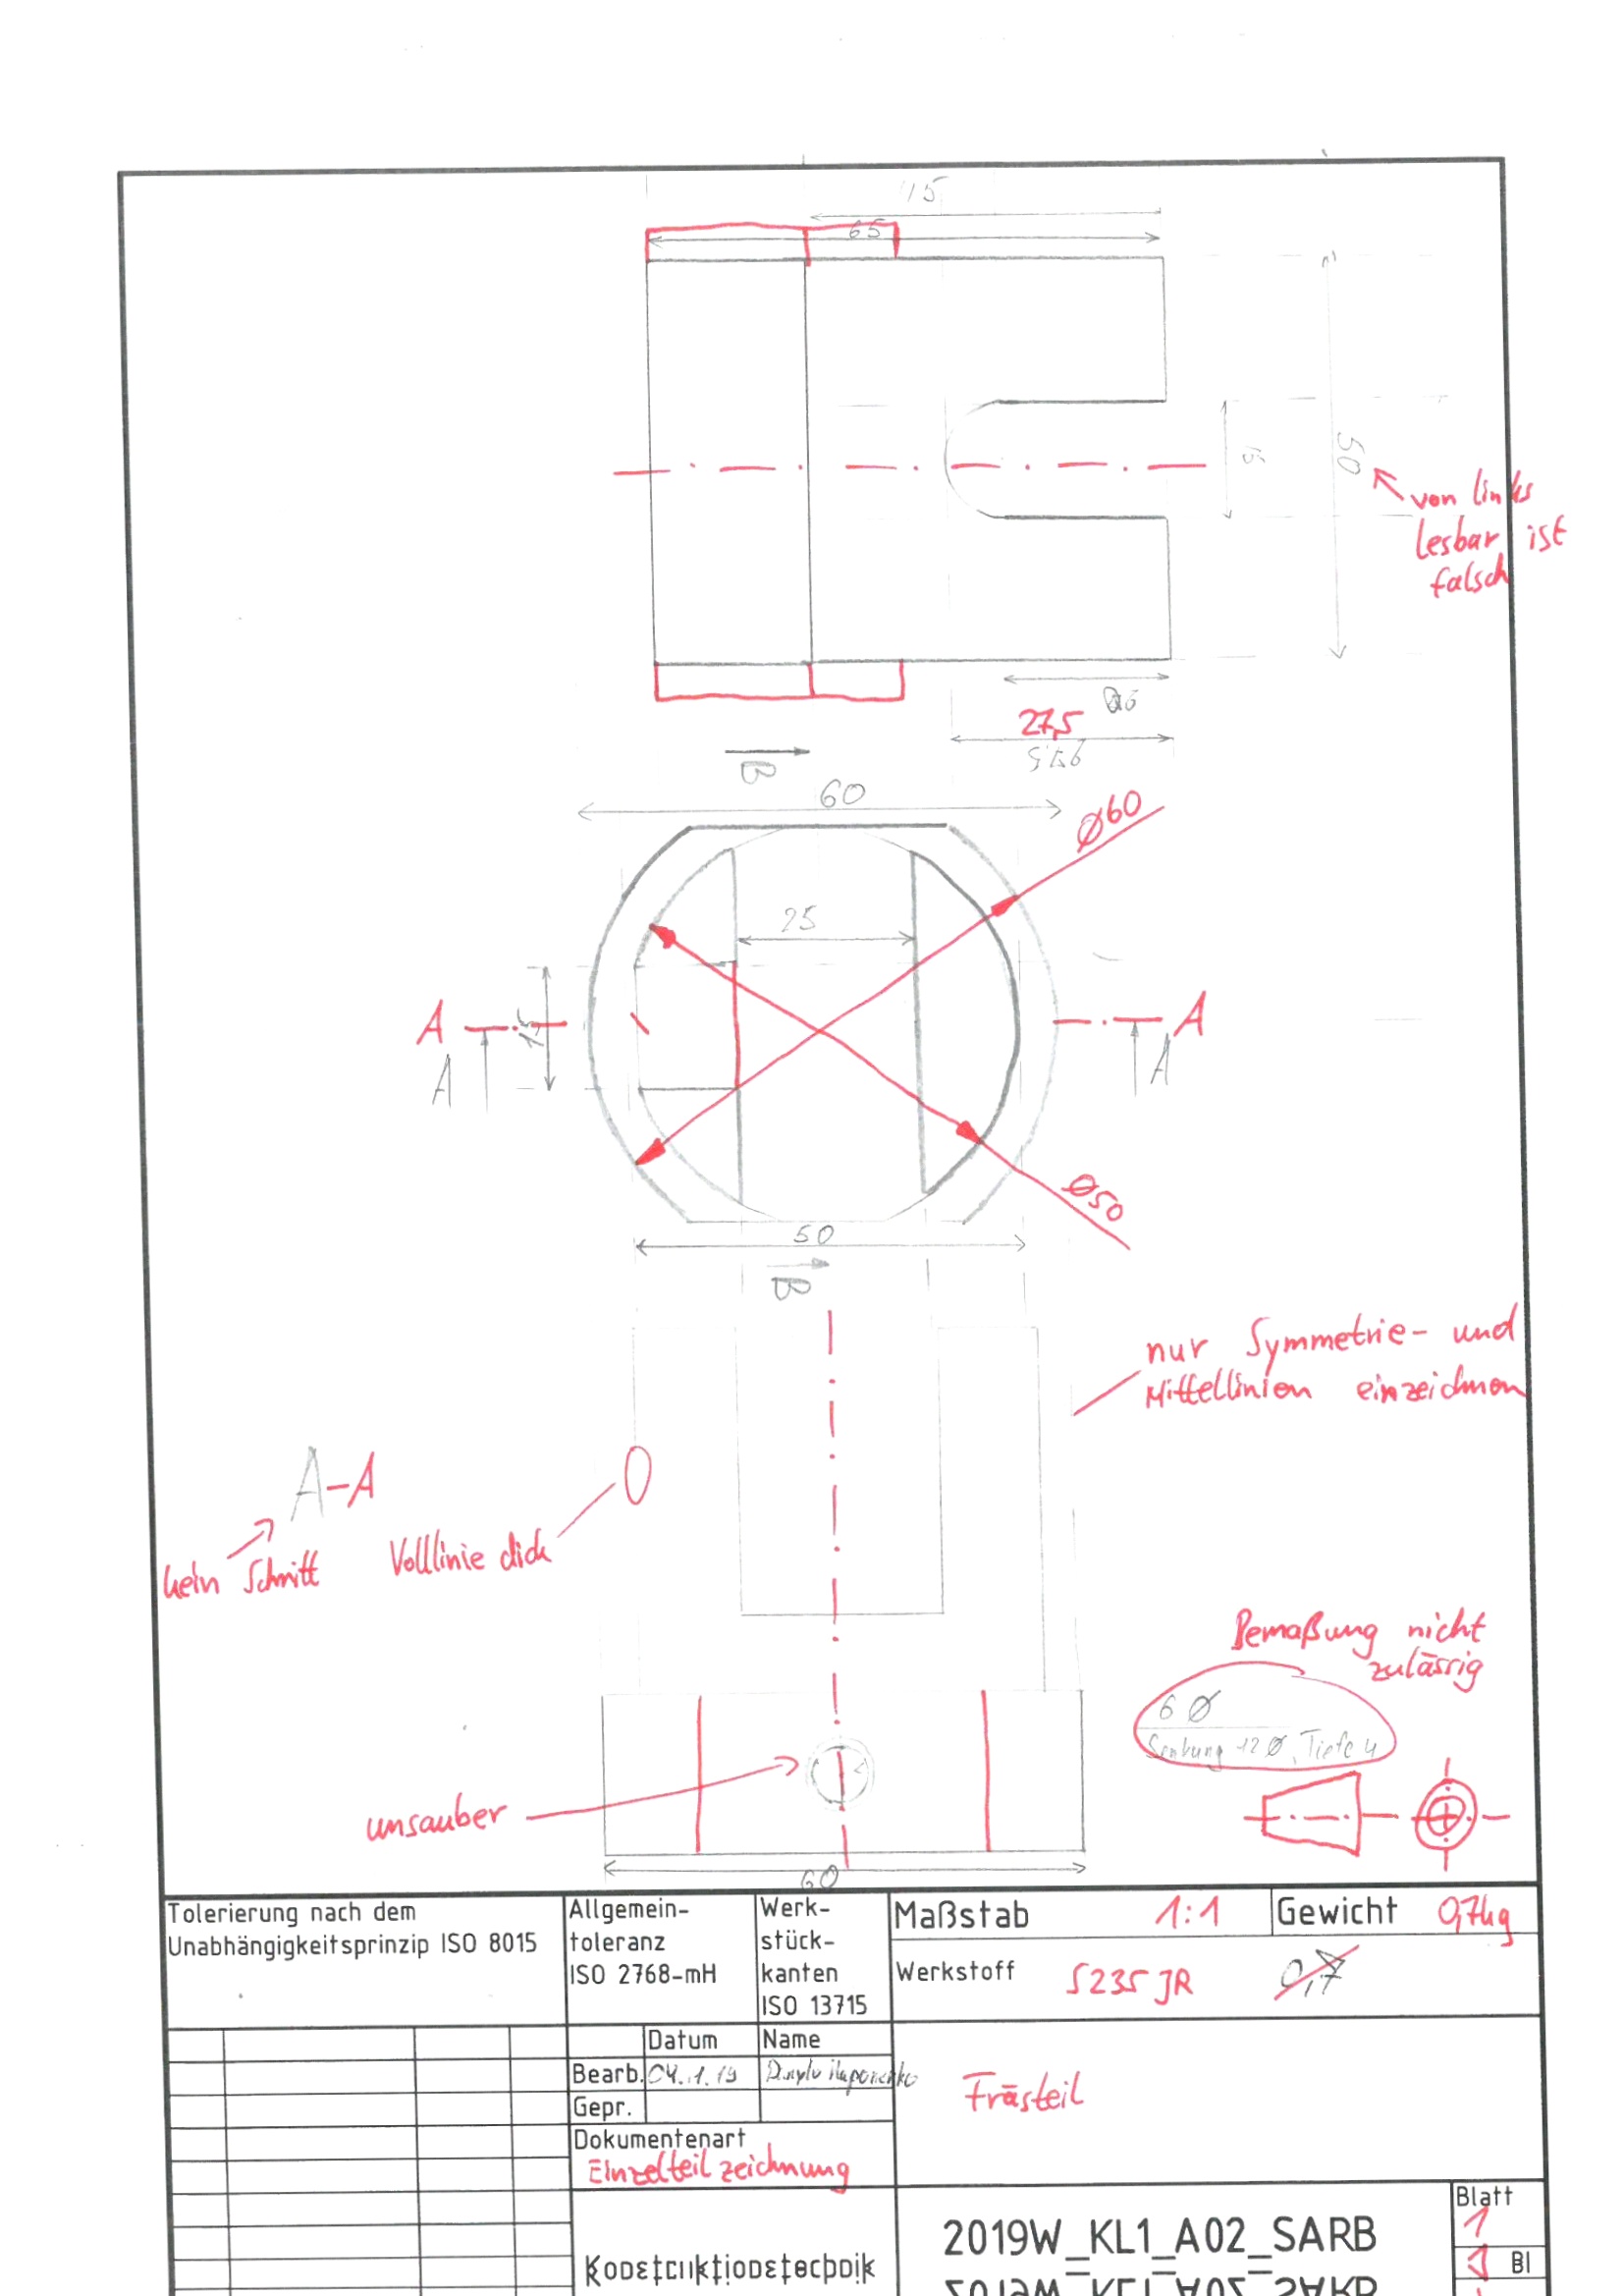 65
50
15
von links
lesbar ist
falsch
27,5
B
60
Ø60
25
A
A
15
A
A
Ø50
50
B
nur Symmetrie- und
Mittellinien einzeichnen
A-A
kein Schnitt
Volllinie dick
Bemaßung nicht
zulässig
6 Ø
Senkung 12 Ø, Tiefe 4
unsauber
60
Tolerierung nach dem
Unabhängigkeitsprinzip ISO 8015
Allgemein-
toleranz
ISO 2768-mH
Werk-
stück-
kanten
ISO 13715
Maßstab 1:1
Gewicht 0,7kg
Werkstoff S235JR 0,7
Datum Name
Bearb. 04.1.19
Gepr.
Dokumentenart
Einzelteilzeichnung
Frästeil
Konstruktionstechnik
2019W_KL1_A02_SARB
Blatt
1
1 Bl